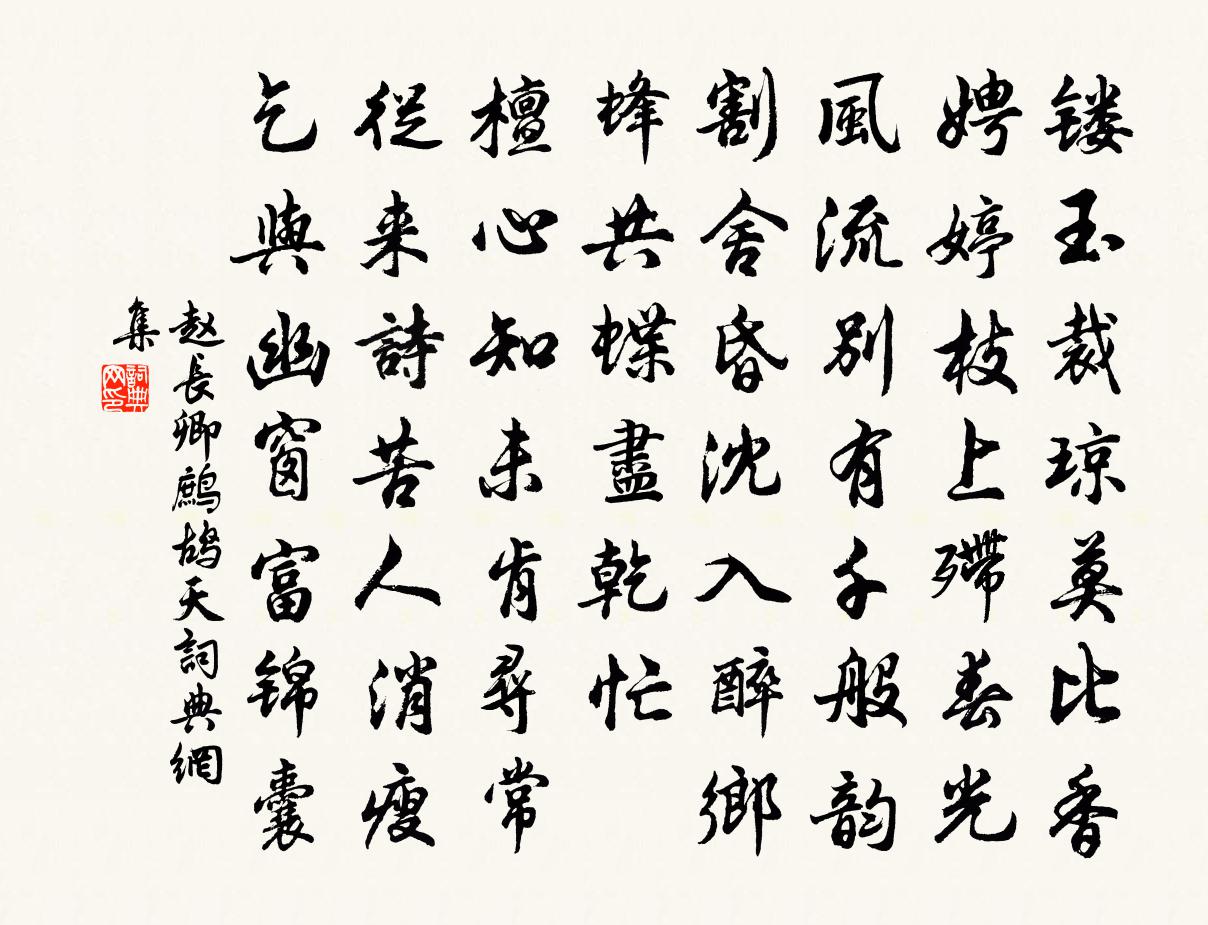 镂玉裁琼莫比香
娉婷枝上殢春光
風流別有千般韵
割舍昏沈入醉鄉
蜂共蝶盡乾忙
檀心知未肯尋常
從来詩苦人消瘦
乞與幽窗富锦囊
赵長卿鷓鴣天詞典網
集
詞典
网印